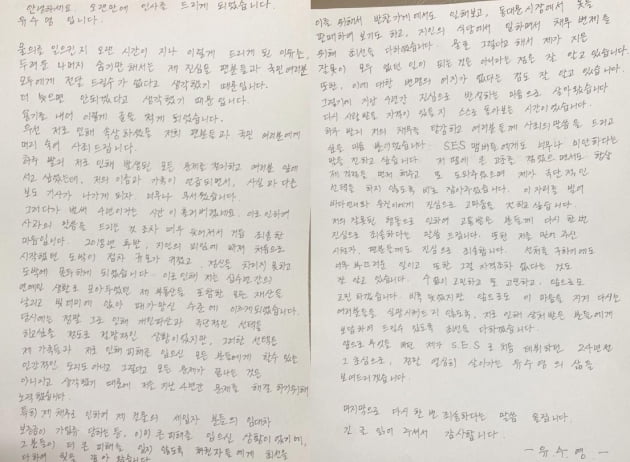 안녕하세요. 오랜만에 인사를 드리게 되었습니다.
유수영 입니다.
물의를 일으킨지 오랜 시간이 지나 이렇게 드리게 된 이유는,
두려운 나머지 숨기만 해서는 제 진심을 팬분들과 국민 여러분
모두에게 전달 드릴수가 없다고 생각했기 때문입니다.
더 늦으면 안되겠다고 생각했기 때문입니다.
용기를 내어 이렇게 글을 적게 되었습니다.
우선 저로 인해 속상하셨을 저희 팬분들과 국민 여러분에게
머리 숙여 사과드립니다.
하루 빨리 저로 인해 발생된 모든 문제를 정리하고 여러분 앞에
서고 싶었는데, 저의 이름과 가족이 언급되면서, 사실과 다른
보도 기사가 나가게 되자 너무나 무서웠습니다.
그러다가 벌써 수년이라는 시간이 흘러버렸네요. 이로 인하여
사과의 말씀을 드리는 것 조차 너무 늦어져서 거듭 죄송한
마음입니다. 2016년 후반, 지인의 꾀임에 빠져 처음으로
시작했던 도박이 점차 규모가 커졌고, 정신을 차리지 못하고
도박에 몰두하게 되었습니다. 이로 인해 저는 십수년간의
연예인 생활로 모아두었던 제 부동산을 포함한 모든 재산을
날리고 빚더미에 앉아 매가망신 수준에 이르게되었습니다.
당시에는 정말 그로 인해 개인파산과 극단적인 선택을
하고싶을 정도로 절망적인 상황이었지만, 그러한 선택은
제 가족들과 저로 인해 피해를 입으신 모든 분들에게 할수 있는
인간적인 도리도 아니고 그걸로 모든 문제가 끝나는 것은
아니라고 생각했기 때문에 저는 지난 4년간 문제를 해결 하기위해
노력했습니다.
특히 제 채무로 인하여 제 건물의 세입자 분들의 임대차
보증금이 가압류 당하는 등, 이미 큰 피해를 입으신 상황이었기에,
그분들이 더 큰 피해를 입지 않도록 채권자들에게 최선을
이를 위해서 반찬가게에서도 일해보고, 동대문시장에서 옷을
판매하며 보기도 하고, 지인의 식당에서 일하면서 채무 변제를
위해 최선을 다하였습니다. 물론 그렇다고 해서 제가 지은
잘못이 모두 없던 일이 되는 것은 아니라는 점은 잘 알고 있습니다.
또한, 이에 대한 변명의 여지가 없다는 점도 잘 알고 있습니다.
그렇기에 지난 4년간 진심으로 반성하는 마음으로 살아왔습니다.
다시 사랑 받을 자격이 있을지 스스로 돌아보는 시간이었습니다.
하루 빨리 저의 채무를 탕감하고 여러분들께 사죄의 말씀을 드리고
싶은 마음뿐이었습니다. S.E.S 멤버들에게도 너무나 미안하다는
말을 전하고 싶습니다. 저 때문에 큰 고통을 겪었으면서도 항상
제 걱정을 먼저 해주고 또 도와주었으며 제가 극단적인
선택을 하지 않도록 바로 잡아주었습니다. 이 자리를 빌어
바다언니와 유진이에게 진심으로 고마움을 전하고 싶습니다.
저의 잘못된 행동으로 인하여 고통받은 분들께 다시 한번
진심으로 죄송하다는 말씀 드립니다. 또한 저를 믿어 주신
너무 부끄러운 일이고 또한 그럴 자격조차 없다는 것도
잘 알고 있습니다. 수없이 고민하고 또 고민하고, 앞으로도
고민 하겠습니다. 비록 늦었지만 앞으로도 이 마음을 가져 다시는
여러분들을 실망시켜드리지 않도록, 저로 인해 상처 받은 분들에게
보답하며 드릴수 있도록 최선을 다하겠습니다.
앞으로 무엇을 하든 제가 S.E.S로 처음 데뷔하였던 24년전
그 초심으로, 정말 열심히 살아가는 유수영의 삶을
보여드리겠습니다.
마지막으로 다시 한 번 죄송하다는 말씀 올립니다.
긴 글 읽어 주셔서 감사합니다.
- 유수영 -